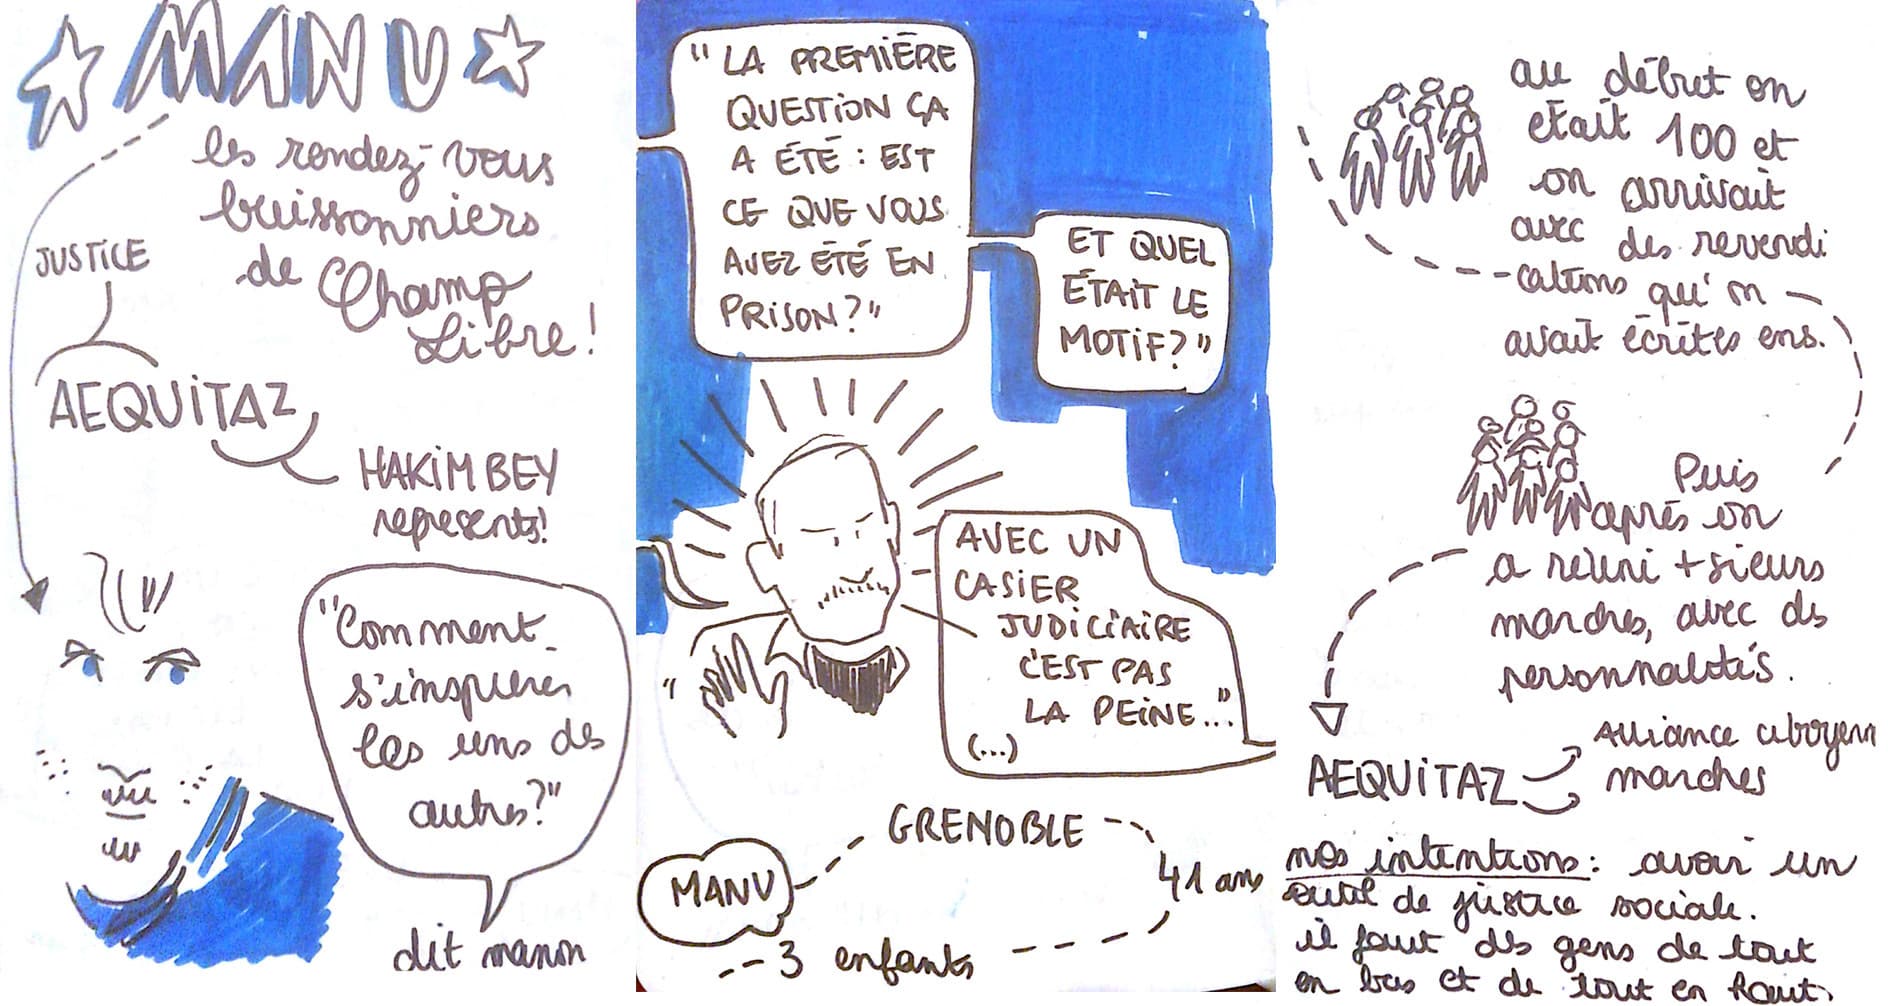 MANU
les rendez-vous
buissonniers
de Champ
Libre !
JUSTICE
AEQUITAZ
HAKIM BEY
represents!
"Comment
s'inspirer
les uns des
autres?"
dit manon
" LA PREMIÈRE
QUESTION ÇA
A ÉTÉ : EST
CE QUE VOUS
AVEZ ÉTÉ EN
PRISON ? "
ET QUEL
ÉTAIT LE
MOTIF ? "
"
AVEC UN
CASIER
JUDICIAIRE
C'EST PAS
LA PEINE... "
(...)
MANU
GRENOBLE
41 ans
3 enfants
au début on
était 100 et
on arrivait
avec des revendi
-cations qu'on
avait écrites ens.
Puis
après on
a réuni +sieurs
marches, avec des
personnalités.
AEQUITAZ
Alliance citoyenn
marches
nos intentions : avoir un
outil de justice sociale.
il faut des gens de tout
en bas et de tout en haut.